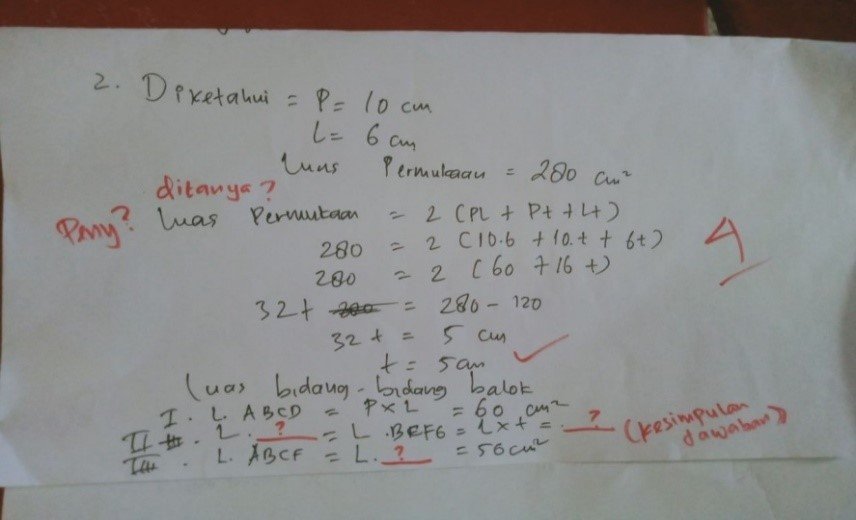 2. Diketahui = P = 10 cm
L = 6 cm
Luas Permukaan = 280 cm²
ditanya?
Peny? Luas Permukaan = 2 (PL + Pt + Lt)
280 = 2 (10.6 + 10.t + 6t)
280 = 2 (60 + 16 t)
4
32t = 280 - 120
32 t = 5 cm
t = 5cm
Luas bidang-bidang balok
I. L. ABCD = P x L = 60 cm²
II. L. ? = L. BCFG = L x t = ? (kesimpulan Jawaban)
III. L. ABCF = L. ? = 50 cm²